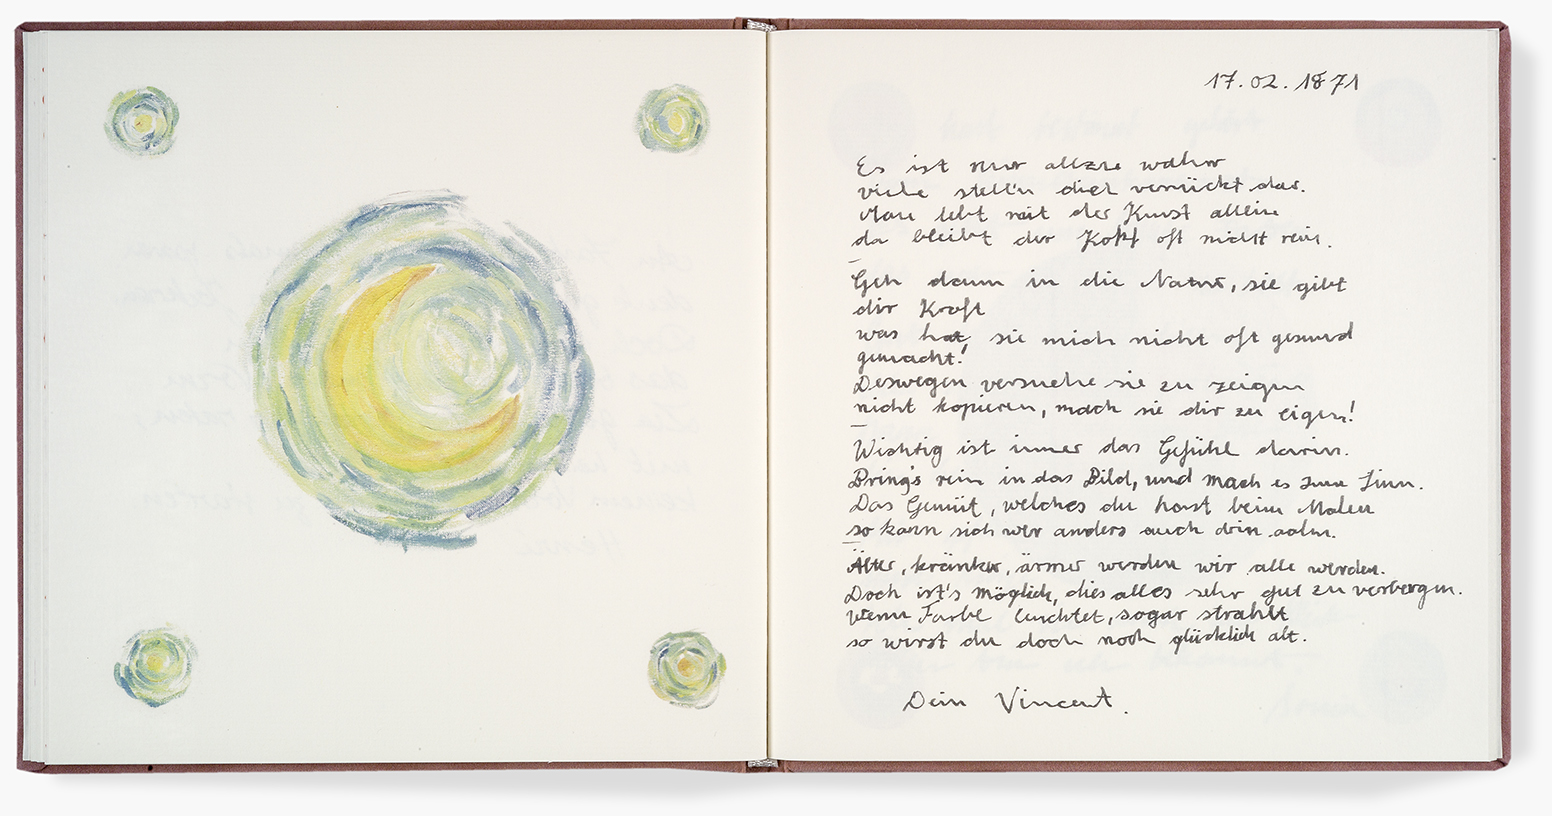 17.02.1871
Es ist nur allzu wahr
viele stell'n dich verrückt dar.
Man lebt mit der Kunst allein
da bleibt der Kopf oft nicht rein.
Geh dann in die Natur, sie gibt
dir Kraft
was hat, sie mich nicht oft gesund
gemacht!
Deswegen versuche sie zu zeigen
nicht kopieren, mach sie dir zu eigen!
Wichtig ist immer das Gefühl darin.
Bring's rein in das Bild, und mach es zum Sinn.
Das Gemüt, welches du hast beim Malen
so kann sich wer anders auch drin aaln.
Älter, kränker, ärmer werden wir alle werden.
Doch ist's möglich, dies alles sehr gut zu verbergen.
Wenn Farbe leuchtet, sogar strahlt
so wirst du doch noch glücklich alt.
Dein Vincent.